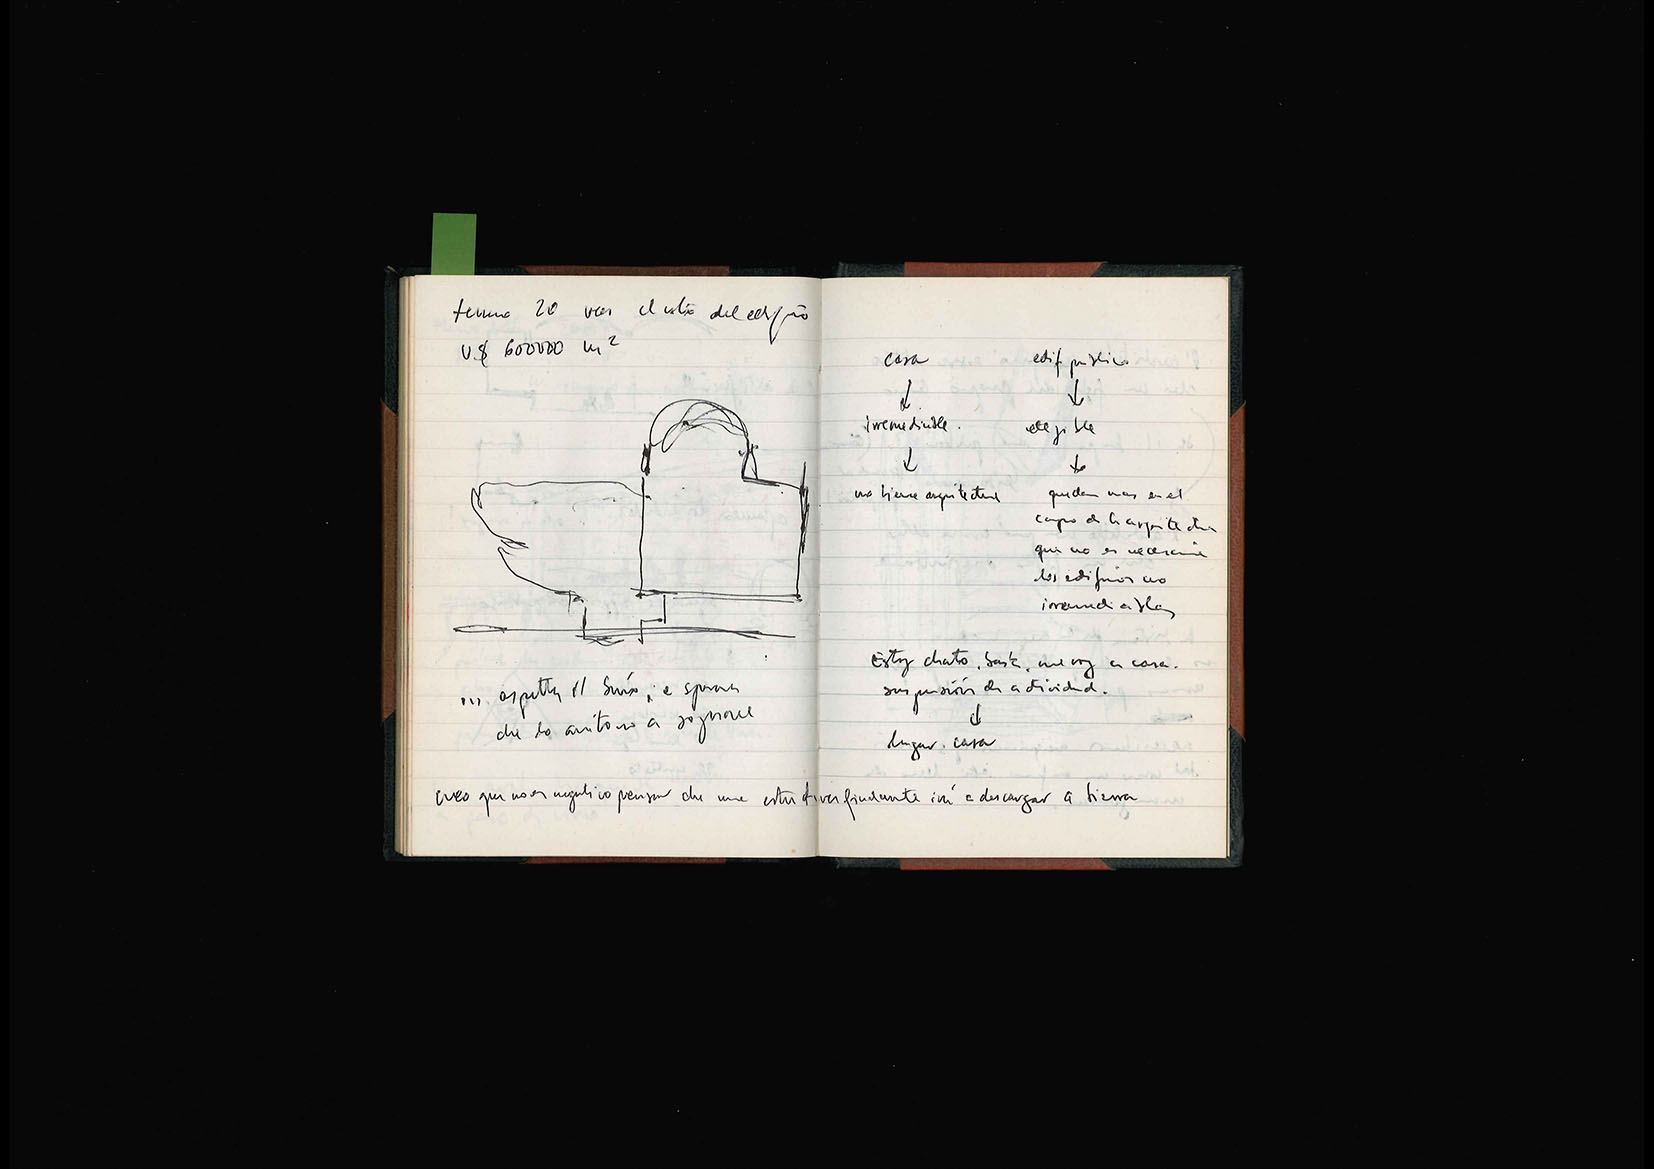 terreno 20 veces el valor del edificio
U$ 600000 m²
... aspetta il buio, e spera
che lo aiutano a sognare
casa
↓
irremediable.
↓
no tiene arquitectura
edif. público
↓
elegible
↓
quedan mas en el
campo de la arquitectura
que no es necesaria
los edificios no
irremediables
Estoy chato, basta, me voy a casa.
suspensión de actividad.
↓
lugar. casa
creo que no es negativo pensar che una estructura finalmente irá a descargar a tierra